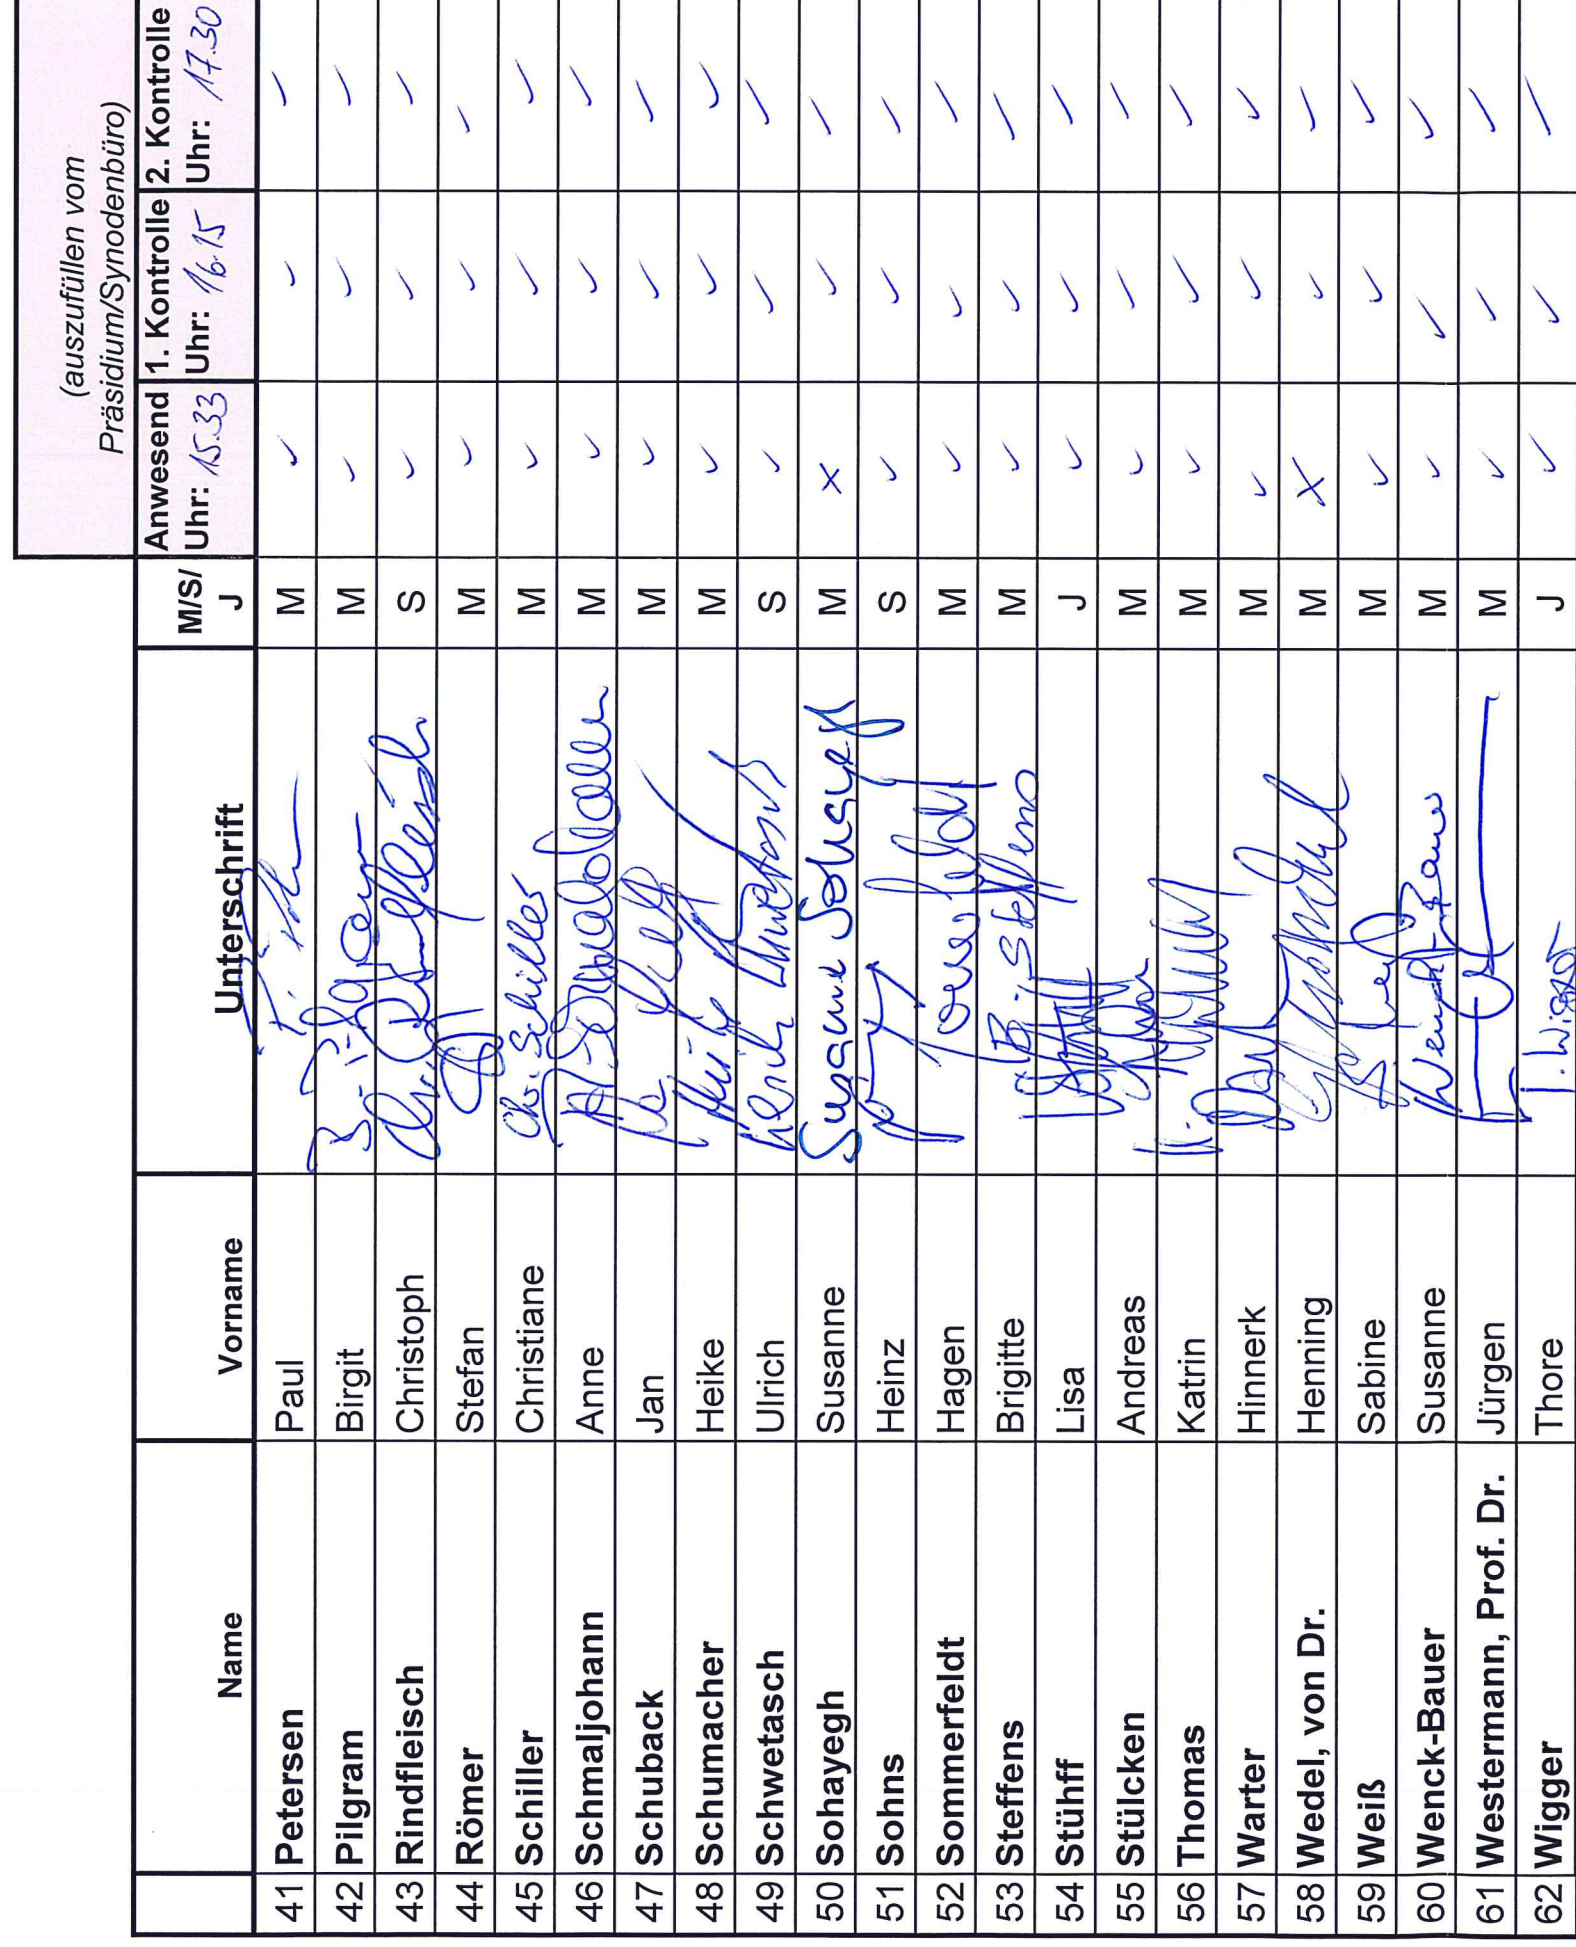 (auszufüllen vom
Präsidium/Synodenbüro)
Name Vorname Unterschrift M/S/ J Anwesend Uhr: 15.33 1. Kontrolle Uhr: 16.15 2. Kontrolle Uhr: 17.30
41 Petersen Paul M ✓ ✓ ✓
42 Pilgram Birgit B. Pilgram M ✓ ✓ ✓
43 Rindfleisch Christoph Christoph Rindfleisch S ✓ ✓ ✓
44 Römer Stefan M ✓ ✓ ✓
45 Schiller Christiane Chr. Schiller M ✓ ✓ ✓
46 Schmaljohann Anne A. Schmaljohann M ✓ ✓ ✓
47 Schuback Jan M ✓ ✓ ✓
48 Schumacher Heike M ✓ ✓ ✓
49 Schwetasch Ulrich Ulrich Schwetasch S ✓ ✓ ✓
50 Sohayegh Susanne Susanne Sohayegh M x ✓ ✓
51 Sohns Heinz S ✓ ✓ ✓
52 Sommerfeldt Hagen M ✓ ✓ ✓
53 Steffens Brigitte B. Steffens M ✓ ✓ ✓
54 Stühff Lisa J ✓ ✓ ✓
55 Stülcken Andreas M ✓ ✓ ✓
56 Thomas Katrin M ✓ ✓ ✓
57 Warter Hinnerk M ✓ ✓ ✓
58 Wedel, von Dr. Henning M x ✓ ✓
59 Weiß Sabine M ✓ ✓ ✓
60 Wenck-Bauer Susanne Wenck-Bauer M ✓ ✓ ✓
61 Westermann, Prof. Dr. Jürgen M ✓ ✓ ✓
62 Wigger Thore T. Wigger J ✓ ✓ ✓